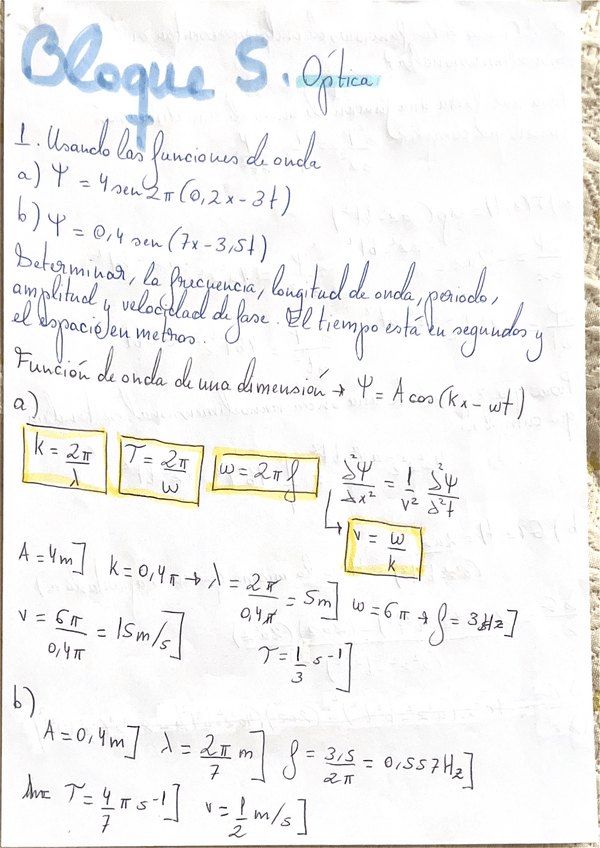 Bloque 5. Óptica
1. Usando las funciones de onda
a) Ψ = 4 sen 2π (0,2x - 3t)
b) Ψ = 0,4 sen (7x - 3,5t)
Determinar, la frecuencia, longitud de onda, periodo,
amplitud y velocidad de fase. El tiempo está en segundos y
el espacio en metros.
Función de onda de una dimensión → Ψ = A cos (Kx - ωt)
a)
k = 2π/λ T = 2π/ω ω = 2π f ∂²Ψ/∂x² = 1/v² ∂²Ψ/∂²t
v = ω/k
A = 4m] k = 0,4π → λ = 2π/0,4π = 5m] ω = 6π → f = 3Hz]
v = 6π/0,4π = 15m/s] T = 1/3 s⁻¹]
b)
A = 0,4m] λ = 2π/7 m] f = 3,5/2π = 0,557Hz]
T = 4/7 π s⁻¹] v = 1/2 m/s]